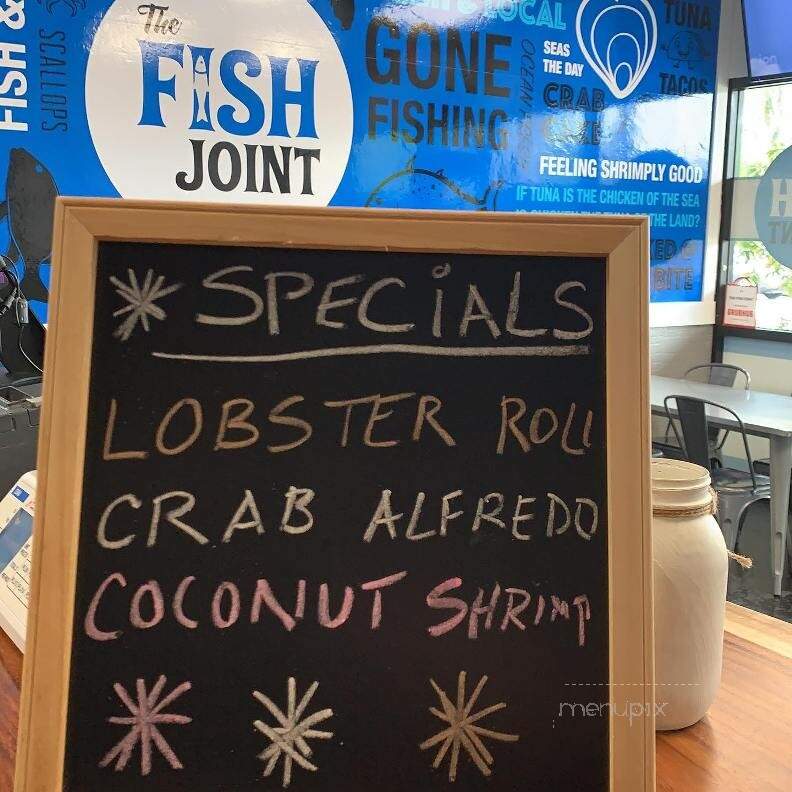 FISH &
SCALLOPS
The
FISH
JOINT
LOCAL
GONE
FISHING
SEAS
THE DAY
CRAB
TUNA
TACOS
FEELING SHRIMPLY GOOD
IF TUNA IS THE CHICKEN OF THE SEA
THE LAND?
BITE
GRUBHUB
SPECIALS
LOBSTER ROLL
CRAB ALFREDO
COCONUT SHRIMP
menupix